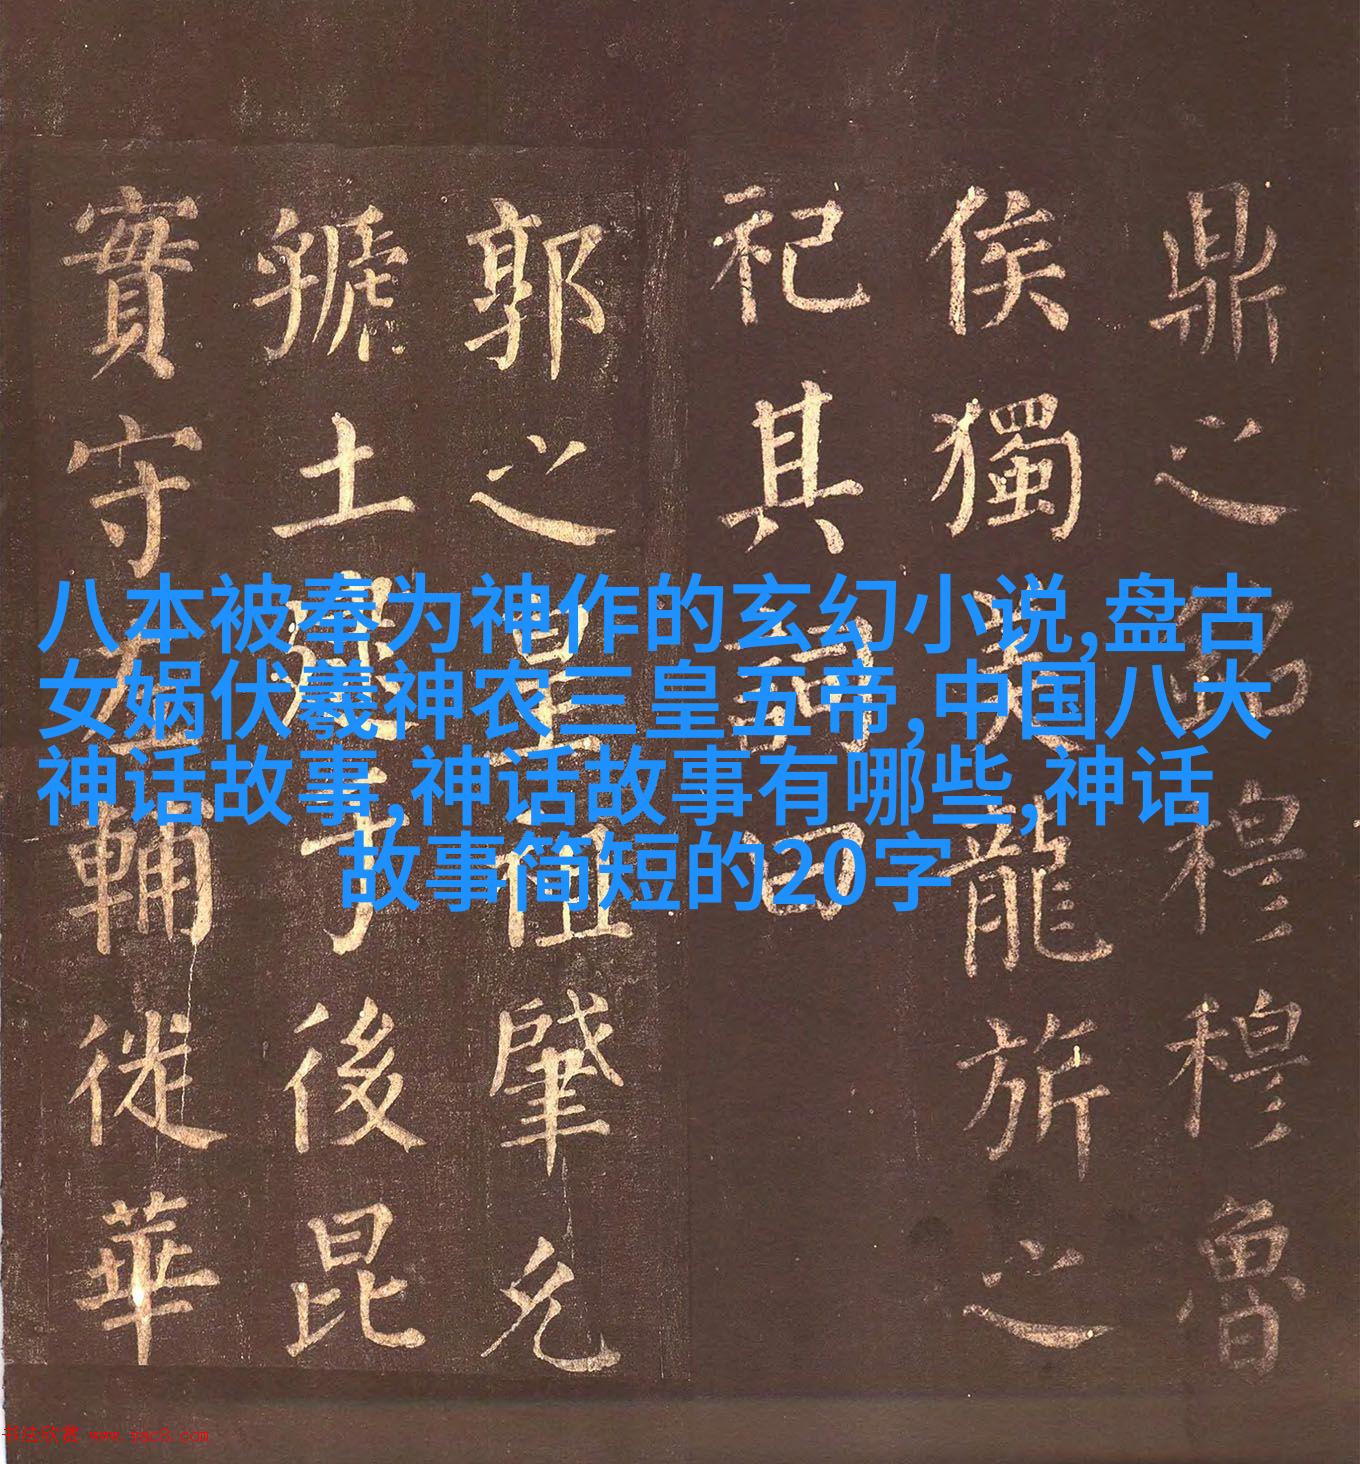 鼎之銘穆穆魯
侯獨美龍旂之
祀其詞曰
郭之皇祖肇允
虢土于後昆
實守左輔徙華
八本被奉为神作的玄幻小说,盘古
女娲伏羲神农三皇五帝,中国八大
神话故事,神话故事有哪些,神话
故事简短的20字
书法欣赏 www.yac8.com